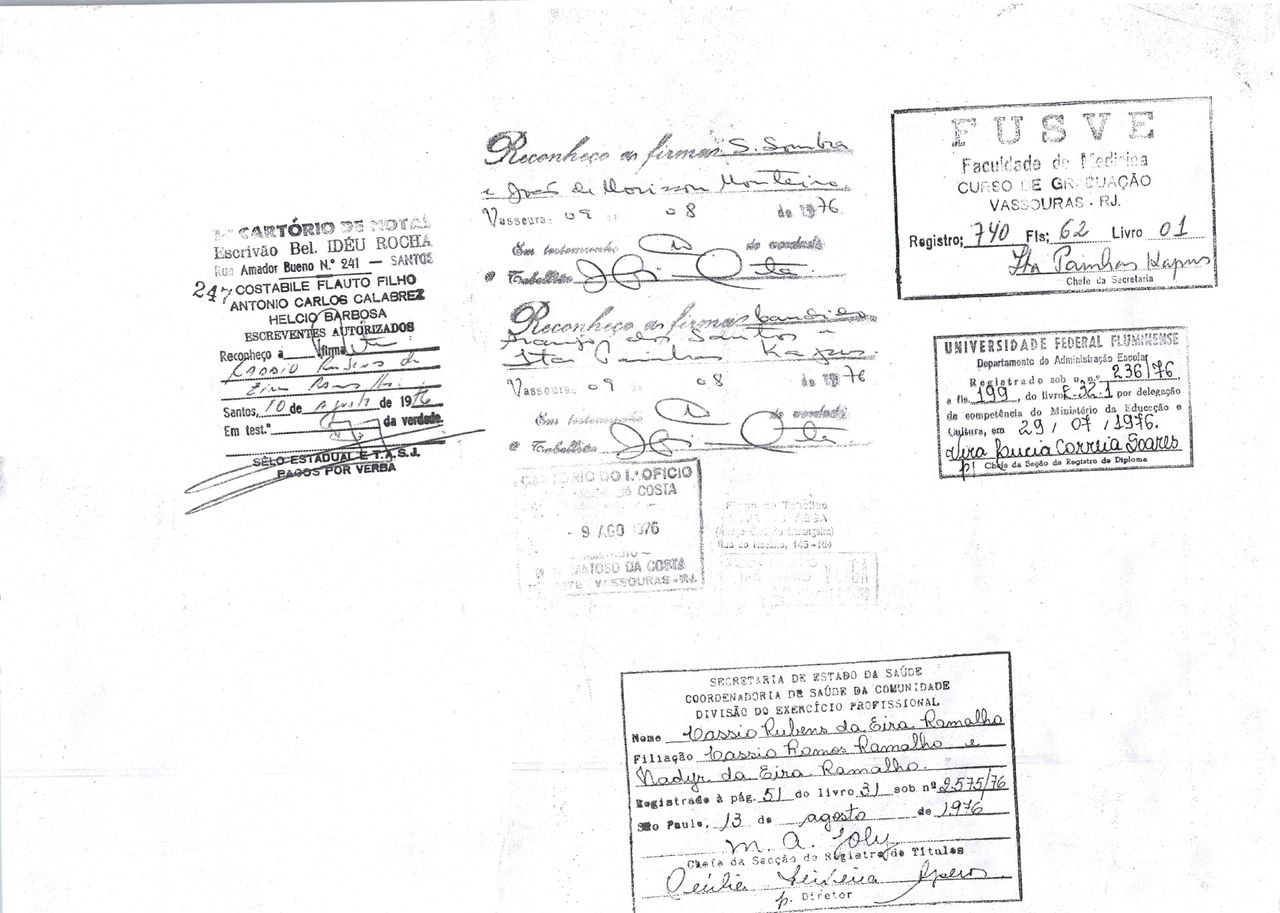 1º CARTÓRIO DE NOTAS
Escrivão Bel. IDÉU ROCHA
Rua Amador Bueno N.º 241 — SANTOS
247
COSTABILE FLAUTO FILHO
ANTONIO CARLOS CALABREZ
HELCIO BARBOSA
ESCREVENTES AUTORIZADOS
Reconheço a firma
Cassio Rubens da
Eira Ramalho
Santos, 10 de agosto de 1976
Em test.º da verdade
SÊLO ESTADUAL E T.A.S.J.
PAGOS POR VERBA
Reconheço as firmas S. Sombra
e José de Morisson Monteiro
Vassouras 09 de 08 de 1976.
Em testemunho da verdade
o Tabellião
Reconheço as firmas Candido
Araujo dos Santos e
Ita Painhas Kapus
Vassouras 09 de 08 de 1976
Em testemunho da verdade
o Tabellião
CARTÓRIO DO 1.º OFÍCIO
DA COSTA
- 9 AGO 1976
MATOSO DA COSTA
VASSOURAS - RJ.
145 - Rio
FUSVE
Faculdade de Medicina
CURSO DE GRADUAÇÃO
VASSOURAS - RJ.
Registro: 740 Fls: 62 Livro 01
Ita Painhas Kapus
Chefe da Secretaria
UNIVERSIDADE FEDERAL FLUMINENSE
Departamento de Administração Escolar
Registrado sob o n.º 236/76
a fls. 199, do livro E-32.1 por delegação
de competência do Ministério da Educação e
Cultura, em 29 / 07 / 1976.
Vera Lucia Correia Soares
p/ Chefe da Seção de Registro de Diploma
SECRETARIA DE ESTADO DA SAÚDE
COORDENADORIA DE SAÚDE DA COMUNIDADE
DIVISÃO DO EXERCÍCIO PROFISSIONAL
Nome Cassio Rubens da Eira Ramalho
Filiação Cassio Ramos Ramalho e
Nadyr da Eira Ramalho.
Registrado à pág. 51 do livro 31 sob nº 2.575/76
São Paulo, 13 de agosto de 1976
M. A. Joly
Chefe da Secção de Registro de Títulos
Cecilia Teixeira
p. Diretor